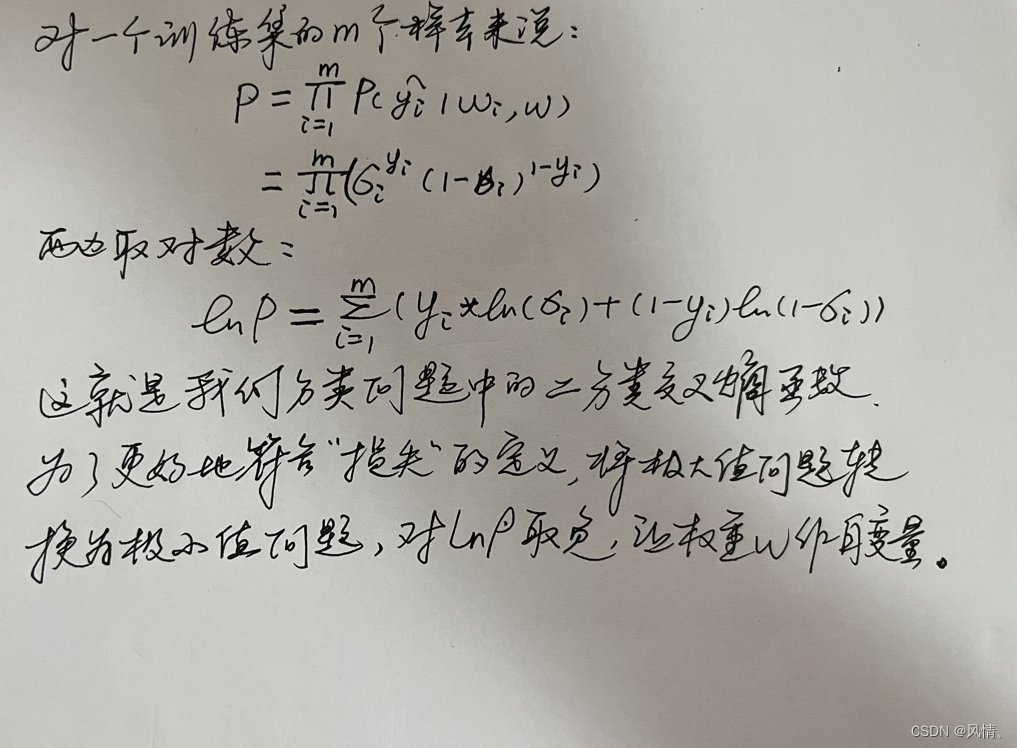 对一个训练集的m个样本来说：
P = ∏_{i=1}^{m} P(ŷ_i | w_i, w)
= ∏_{i=1}^{m} (σ_i^{y_i} (1-σ_i)^{1-y_i})
两边取对数：
lnP = ∑_{i=1}^{m} (y_i * ln(σ_i) + (1-y_i)ln(1-σ_i))
这就是我们分类问题中的二分类交叉熵函数.
为了更好地符合“损失”的定义，将极大值问题转
换为极小值问题，对lnP取负，让权重w作自变量。
CSDN @风情、